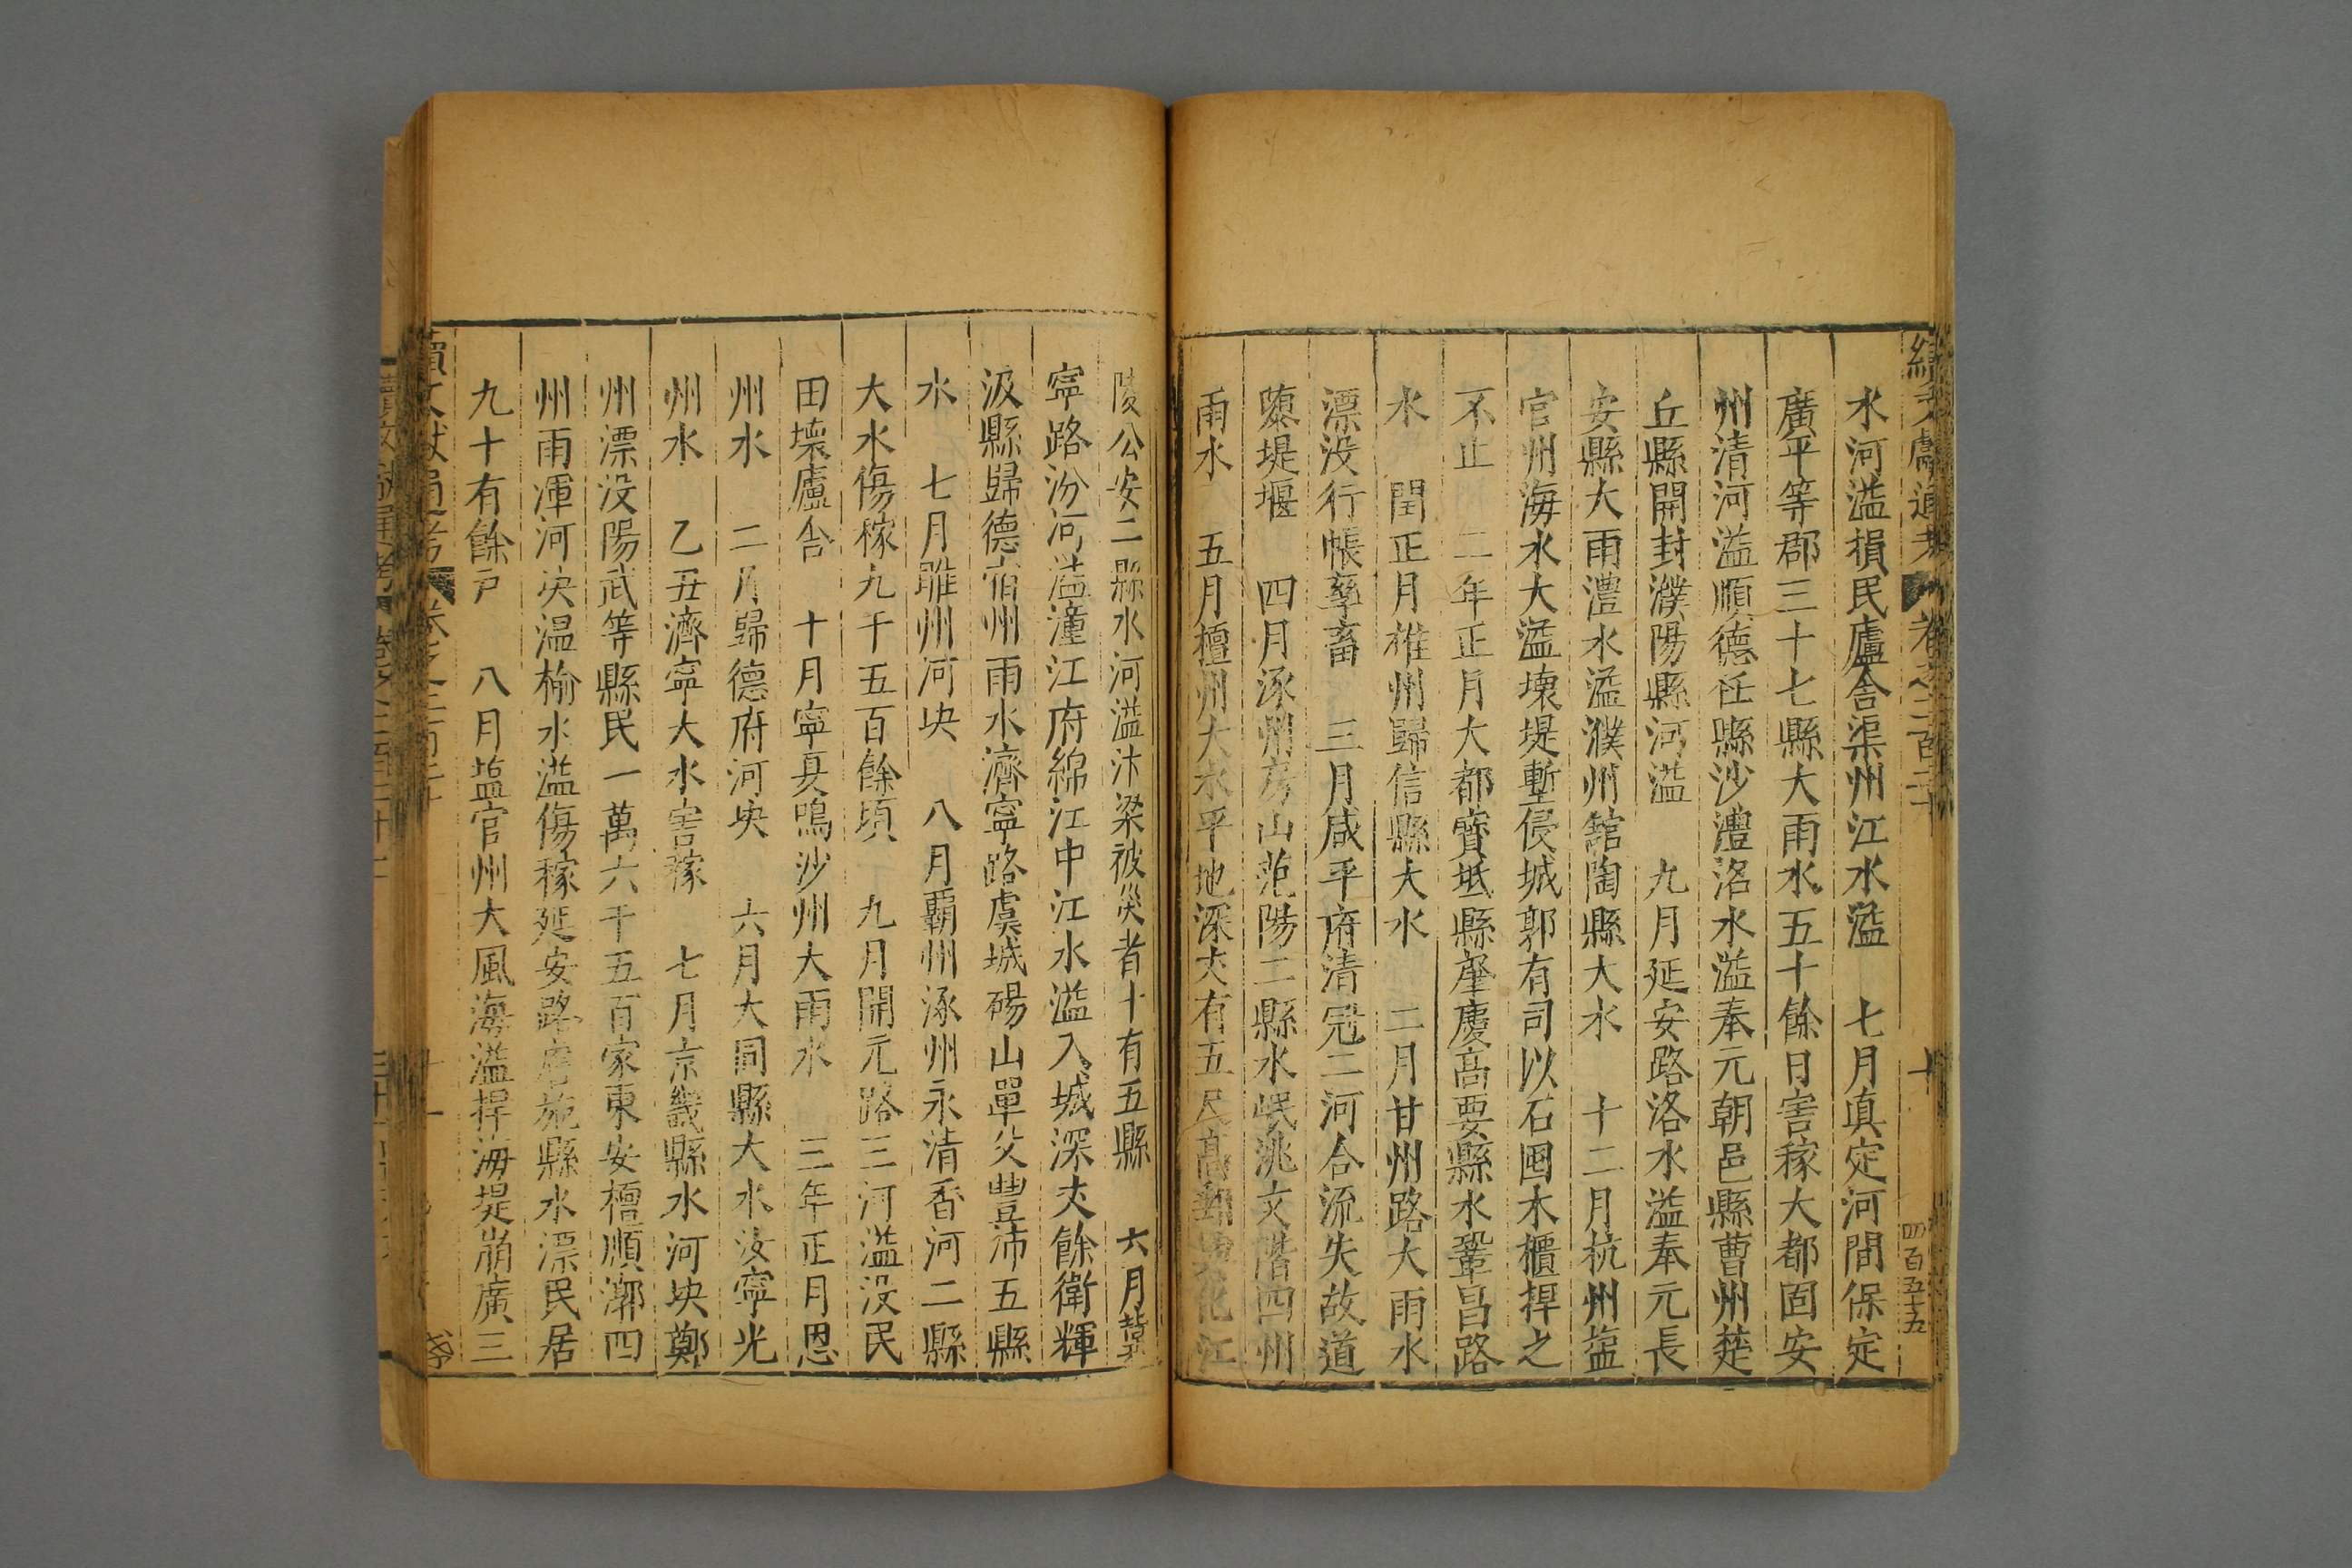 水河溢損民廬舍渠州江水溢　七月真定河間保定
廣平等郡三十七縣大雨水五十餘日害稼大都固安
州清河溢順德任縣沙澧洛水溢奉元朝邑縣曹州楚
丘縣開封濮陽縣河溢　九月延安路洛水溢奉元長
安縣大雨澧水溢濮州館陶縣大水　十二月杭州盐
官州海水大溢壞堤塹侵城郭有司以石囤木櫃捍之
不止　二年正月大都寶坻縣肇慶高要縣水鞏昌路
水　閏正月雄州歸信縣大水　二月甘州路大雨水
漂没行帳孳畜　三月咸平府清冦二河合流失故道
隳堤堰　四月涿州房山范陽二縣水岷洮文階四州
雨水　五月檀州大水平地深丈有五尺高郵興化江
陵公安二縣水河溢汴梁被災者十有五縣　六月冀
寧路汾河溢潼江府綿江中江水溢入城深丈餘衛輝
汲縣歸德宿州雨水濟寧路虞城碭山單父豐沛五縣
水　七月睢州河决　八月霸州涿州永清香河二縣
大水傷稼九千五百餘頃　九月開元路三河溢没民
田壞廬舍　十月寧夏鳴沙州大雨水　三年正月恩
州水　二月歸德府河决　六月大同縣大水汝寧光
州水　乙丑濟寧大水害稼　七月京畿縣水河决鄭
州漂没陽武等縣民一萬六千五百家東安檀順漷四
州雨渾河决温榆水溢傷稼延安路膚施縣水漂民居
九十有餘戸　八月盐官州大風海溢捍海堤崩廣三